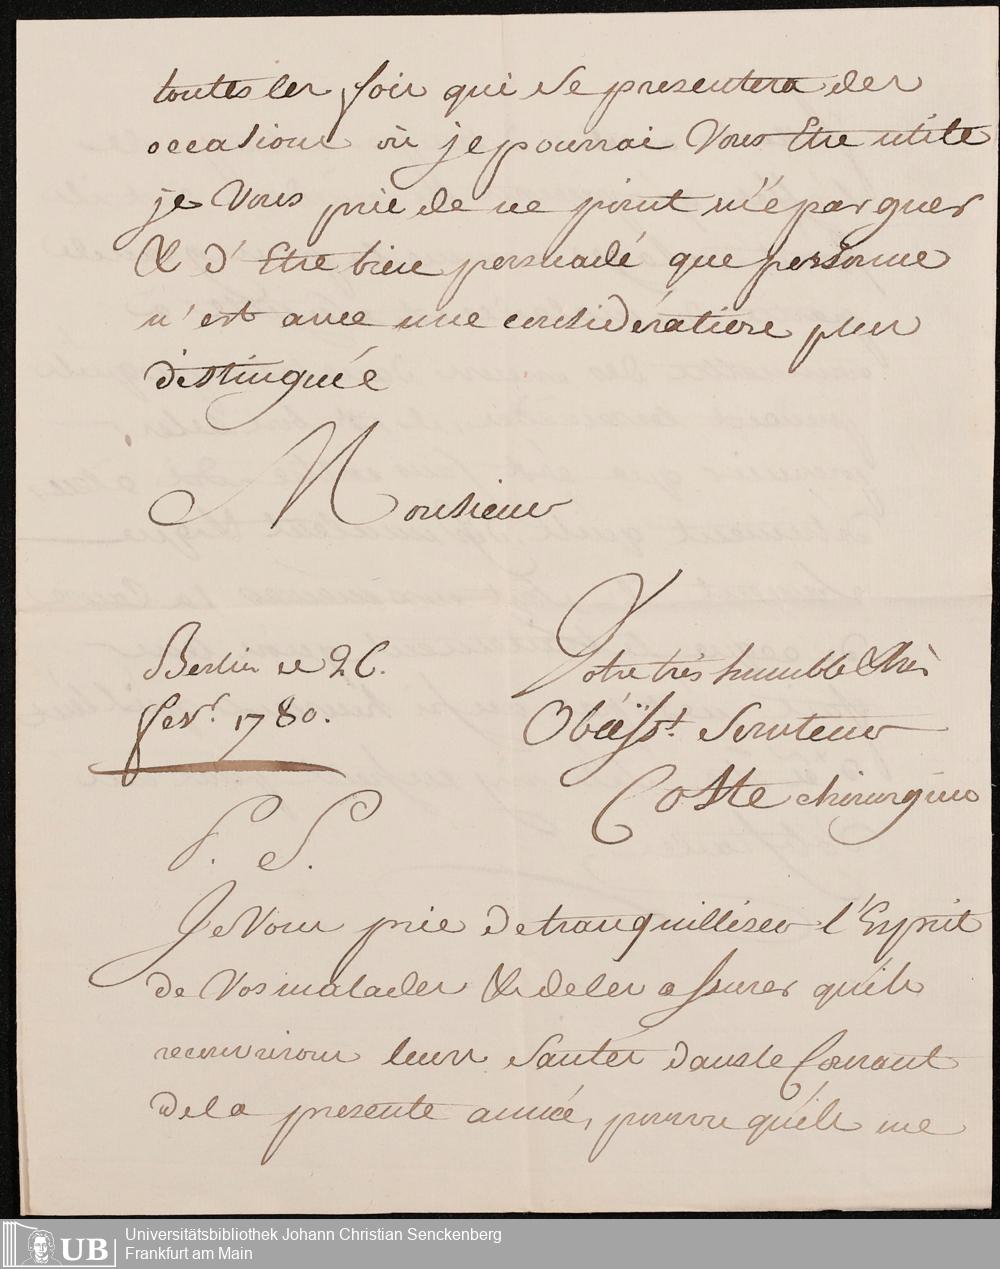 toutes les fois qui se presentera des
occasions où je pourrai Vous Etre utile
je Vous prie de ne point m'épargner
& d'Etre bien persuadé que personne
n'est avec une considération plus
distinguée
Monsieur
Votre très humble & très
Obéïsst. Serviteur
Coste chirurgien
Berlin ce 26.
fevr. 1780.
P. S.
Je Vous prie de tranquilliser l'Esprit
de Vos malades & de les assurer qu'ils
recouvriront leurs santés dans le Courant
de la presente année, pourvu qu'ils me
Universitätsbibliothek Johann Christian Senckenberg
Frankfurt am Main
UB